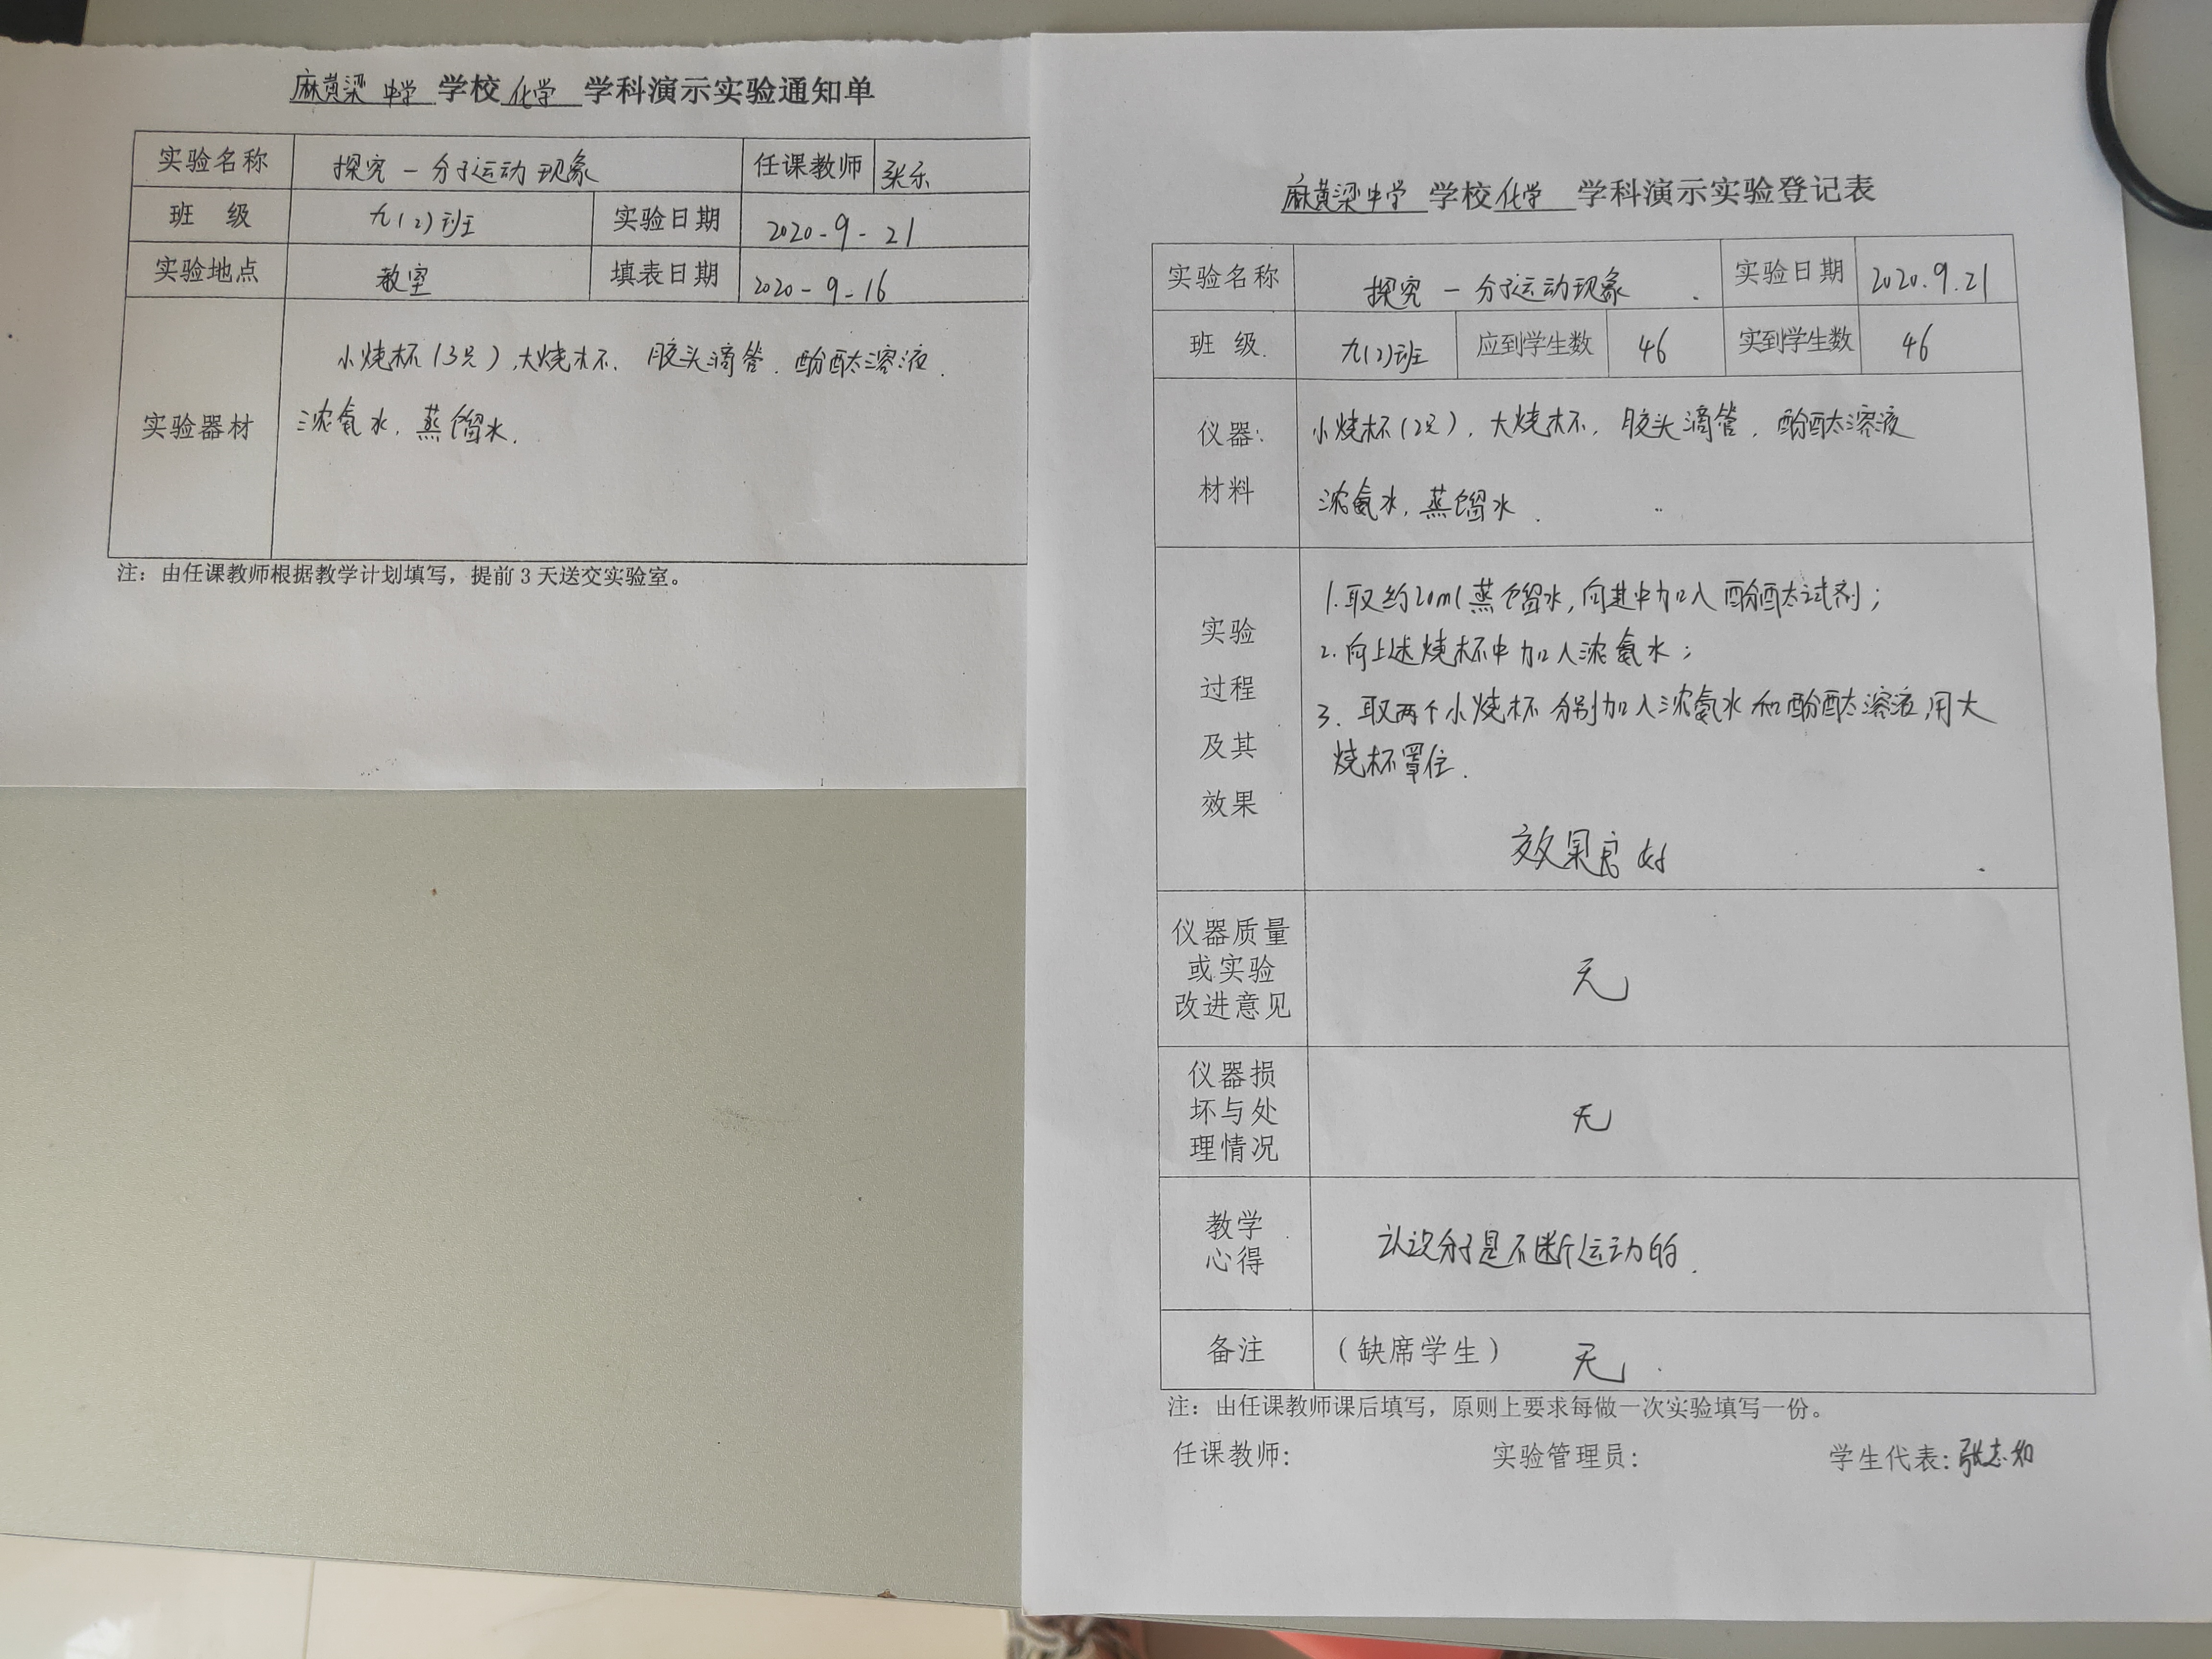 麻黄梁 中学 学校 化学 学科演示实验通知单
实验名称 探究一分子运动现象 任课教师 张乐
班 级 九(2)班 实验日期 2020-9-21
实验地点 教室 填表日期 2020-9-16
实验器材
小烧杯(3只),大烧杯.胶头滴管.酚酞溶液.
浓氨水.蒸馏水.
注:由任课教师根据教学计划填写,提前3天送交实验室。
麻黄梁中学 学校 化学 学科演示实验登记表
实验名称 探究一分子运动现象. 实验日期 2020.9.21
班 级 九(2)班 应到学生数 46 实到学生数 46
仪器:
材料
小烧杯(2只),大烧杯,胶头滴管,酚酞溶液
浓氨水,蒸馏水.
实验
过程
及其
效果
1.取约20ml蒸馏水,向其中加入酚酞试剂;
2.向上述烧杯中加入浓氨水;
3.取两个小烧杯分别加入浓氨水和酚酞溶液,用大
烧杯罩住.
效果良好
仪器质量
或实验
改进意见
无
仪器损
坏与处
理情况
无
教学
心得
认识分子是不断运动的.
备注 (缺席学生) 无.
注:由任课教师课后填写,原则上要求每做一次实验填写一份。
任课教师: 实验管理员: 学生代表:张志